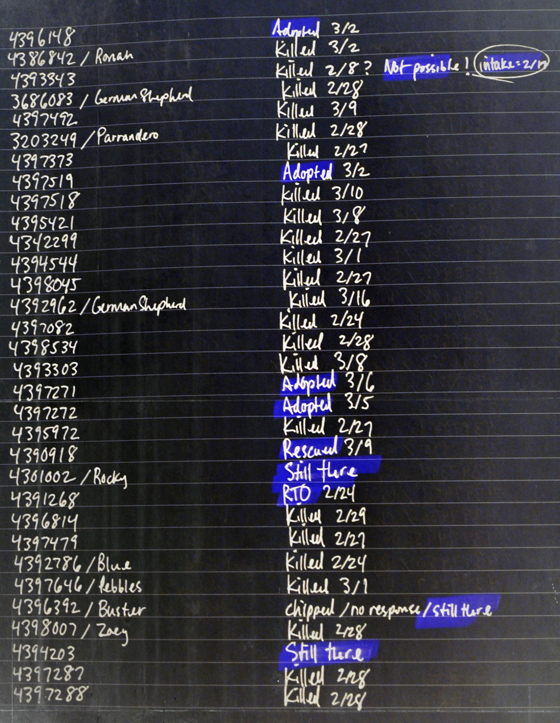 4396148 Adopted 3/2
4386842 / Ronan Killed 3/2
4393343 Killed 2/8? Not possible! intake=2/17
3686083 / German Shepherd Killed 2/28
4397492 Killed 3/9
3203249 / Parrandero Killed 2/28
4397373 Killed 2/27
4397519 Adopted 3/2
4397518 Killed 3/10
4395421 Killed 3/8
4342299 Killed 2/27
4394544 Killed 3/1
4398045 Killed 2/27
4392962 / German Shepherd Killed 3/16
4397082 Killed 2/24
4398534 Killed 2/28
4393303 Killed 3/8
4397271 Adopted 3/6
4397272 Adopted 3/5
4395972 Killed 2/27
4390918 Rescued 3/9
4301002 / Rocky Still there
4391268 RTO 2/24
4396814 Killed 2/29
4397479 Killed 2/27
4392786 / Blue Killed 2/24
4397646 / Pebbles Killed 3/1
4396392 / Buster chipped / no response / still there
4398007 / Zoey Killed 2/28
4394203 Still there
4397287 Killed 2/28
4397288 Killed 2/28